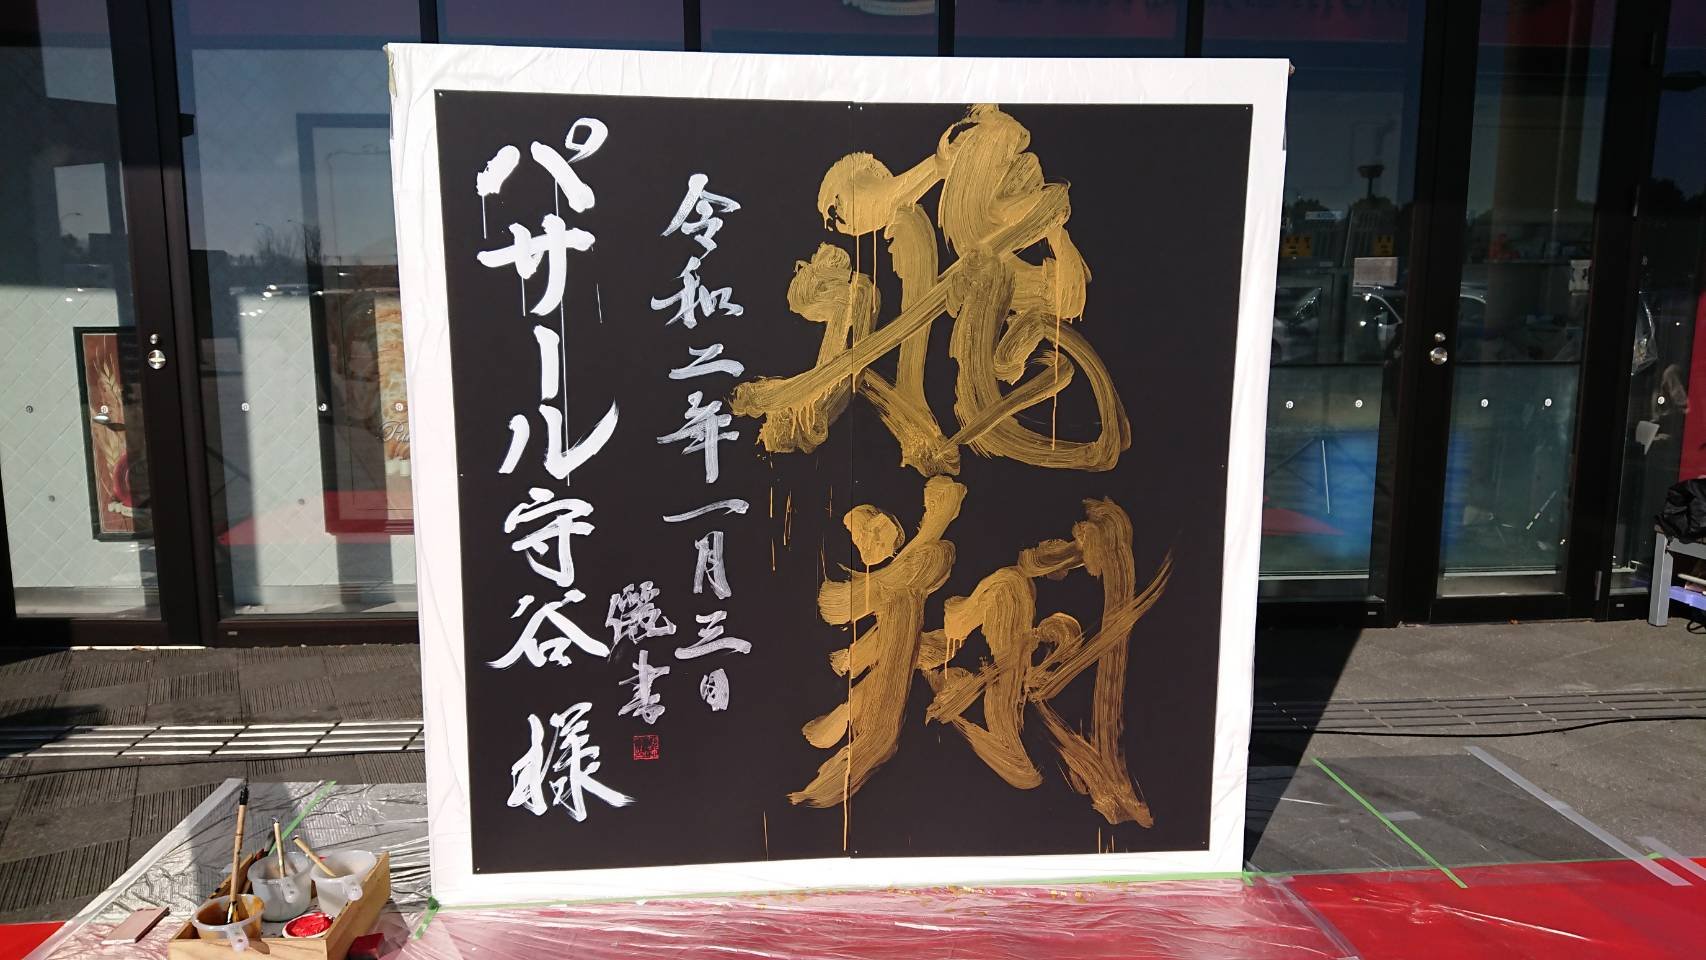 飛翔
令和二年一月三日
書
パサール守谷様